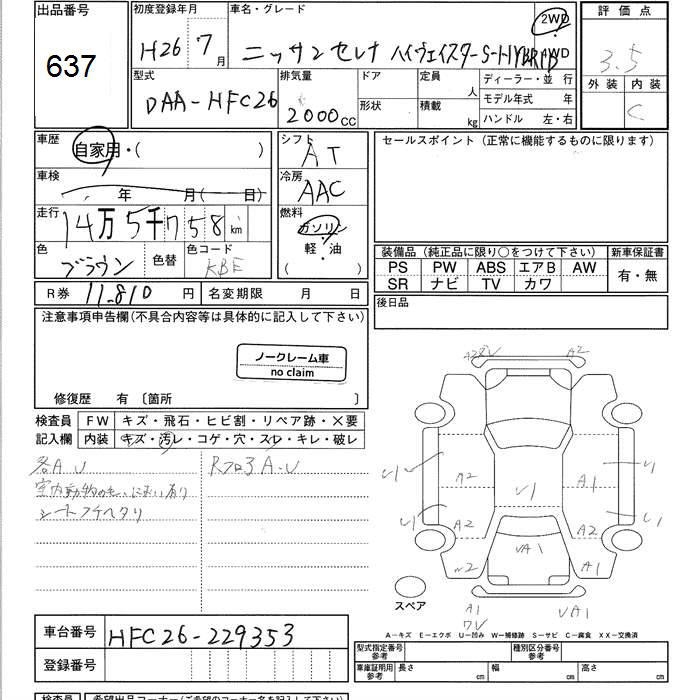 出品番号 初度登録年月 車名・グレード 2WD 評価点
637 H26 7月 ニッサン セレナ ハイウェイスターS-HYBRID 4WD 3.5
型式 排気量 ドア 定員 人 ディーラー・並 行 外装 内装
DAA-HFC26 2000cc 形状 積載 kg モデル年式 年 C
ハンドル 左・右
車歴 自家用・( ) シフト AT セールスポイント (正常に機能するものに限ります)
車検 年 月( 日) 冷房 AAC
走行 14万5千758km 燃料 ガソリン
色 ブラウン 色替 色コード KBE 軽・油
( )
装備品 (純正品に限り○をつけて下さい) 新車保証書
PS PW ABS エアB AW 有・無
SR ナビ TV カワ
R券 11,810 円 名変期限 月 日 後日品
注意事項申告欄(不具合内容等は具体的に記入して下さい)
ノークレーム車
no claim
修復歴 有 〔箇所 〕
検査員 FW キズ・飛石・ヒビ割・リペア跡・×要
記入欄 内装 キズ・汚レ・コゲ・穴・スレ・キレ・破レ
各A U Rフロ3 A.U
シートフチヘタリ
A2
U1 A2 U1 A1 U1
U1 A2 A2 U1
UA1
A1
スペア A1 UA1
A-キズ E-エクボ U-凹み W-補修跡 S-サビ C-腐食 XX-交換済
車台番号 HFC26-229353
登録番号
型式指定番号 参考 種別区分番号 参考
車庫証明用 参考 長さ cm 幅 cm 高さ cm
検査員 希望出品コーナー(ご希望のコーナー名を記入して下さい)